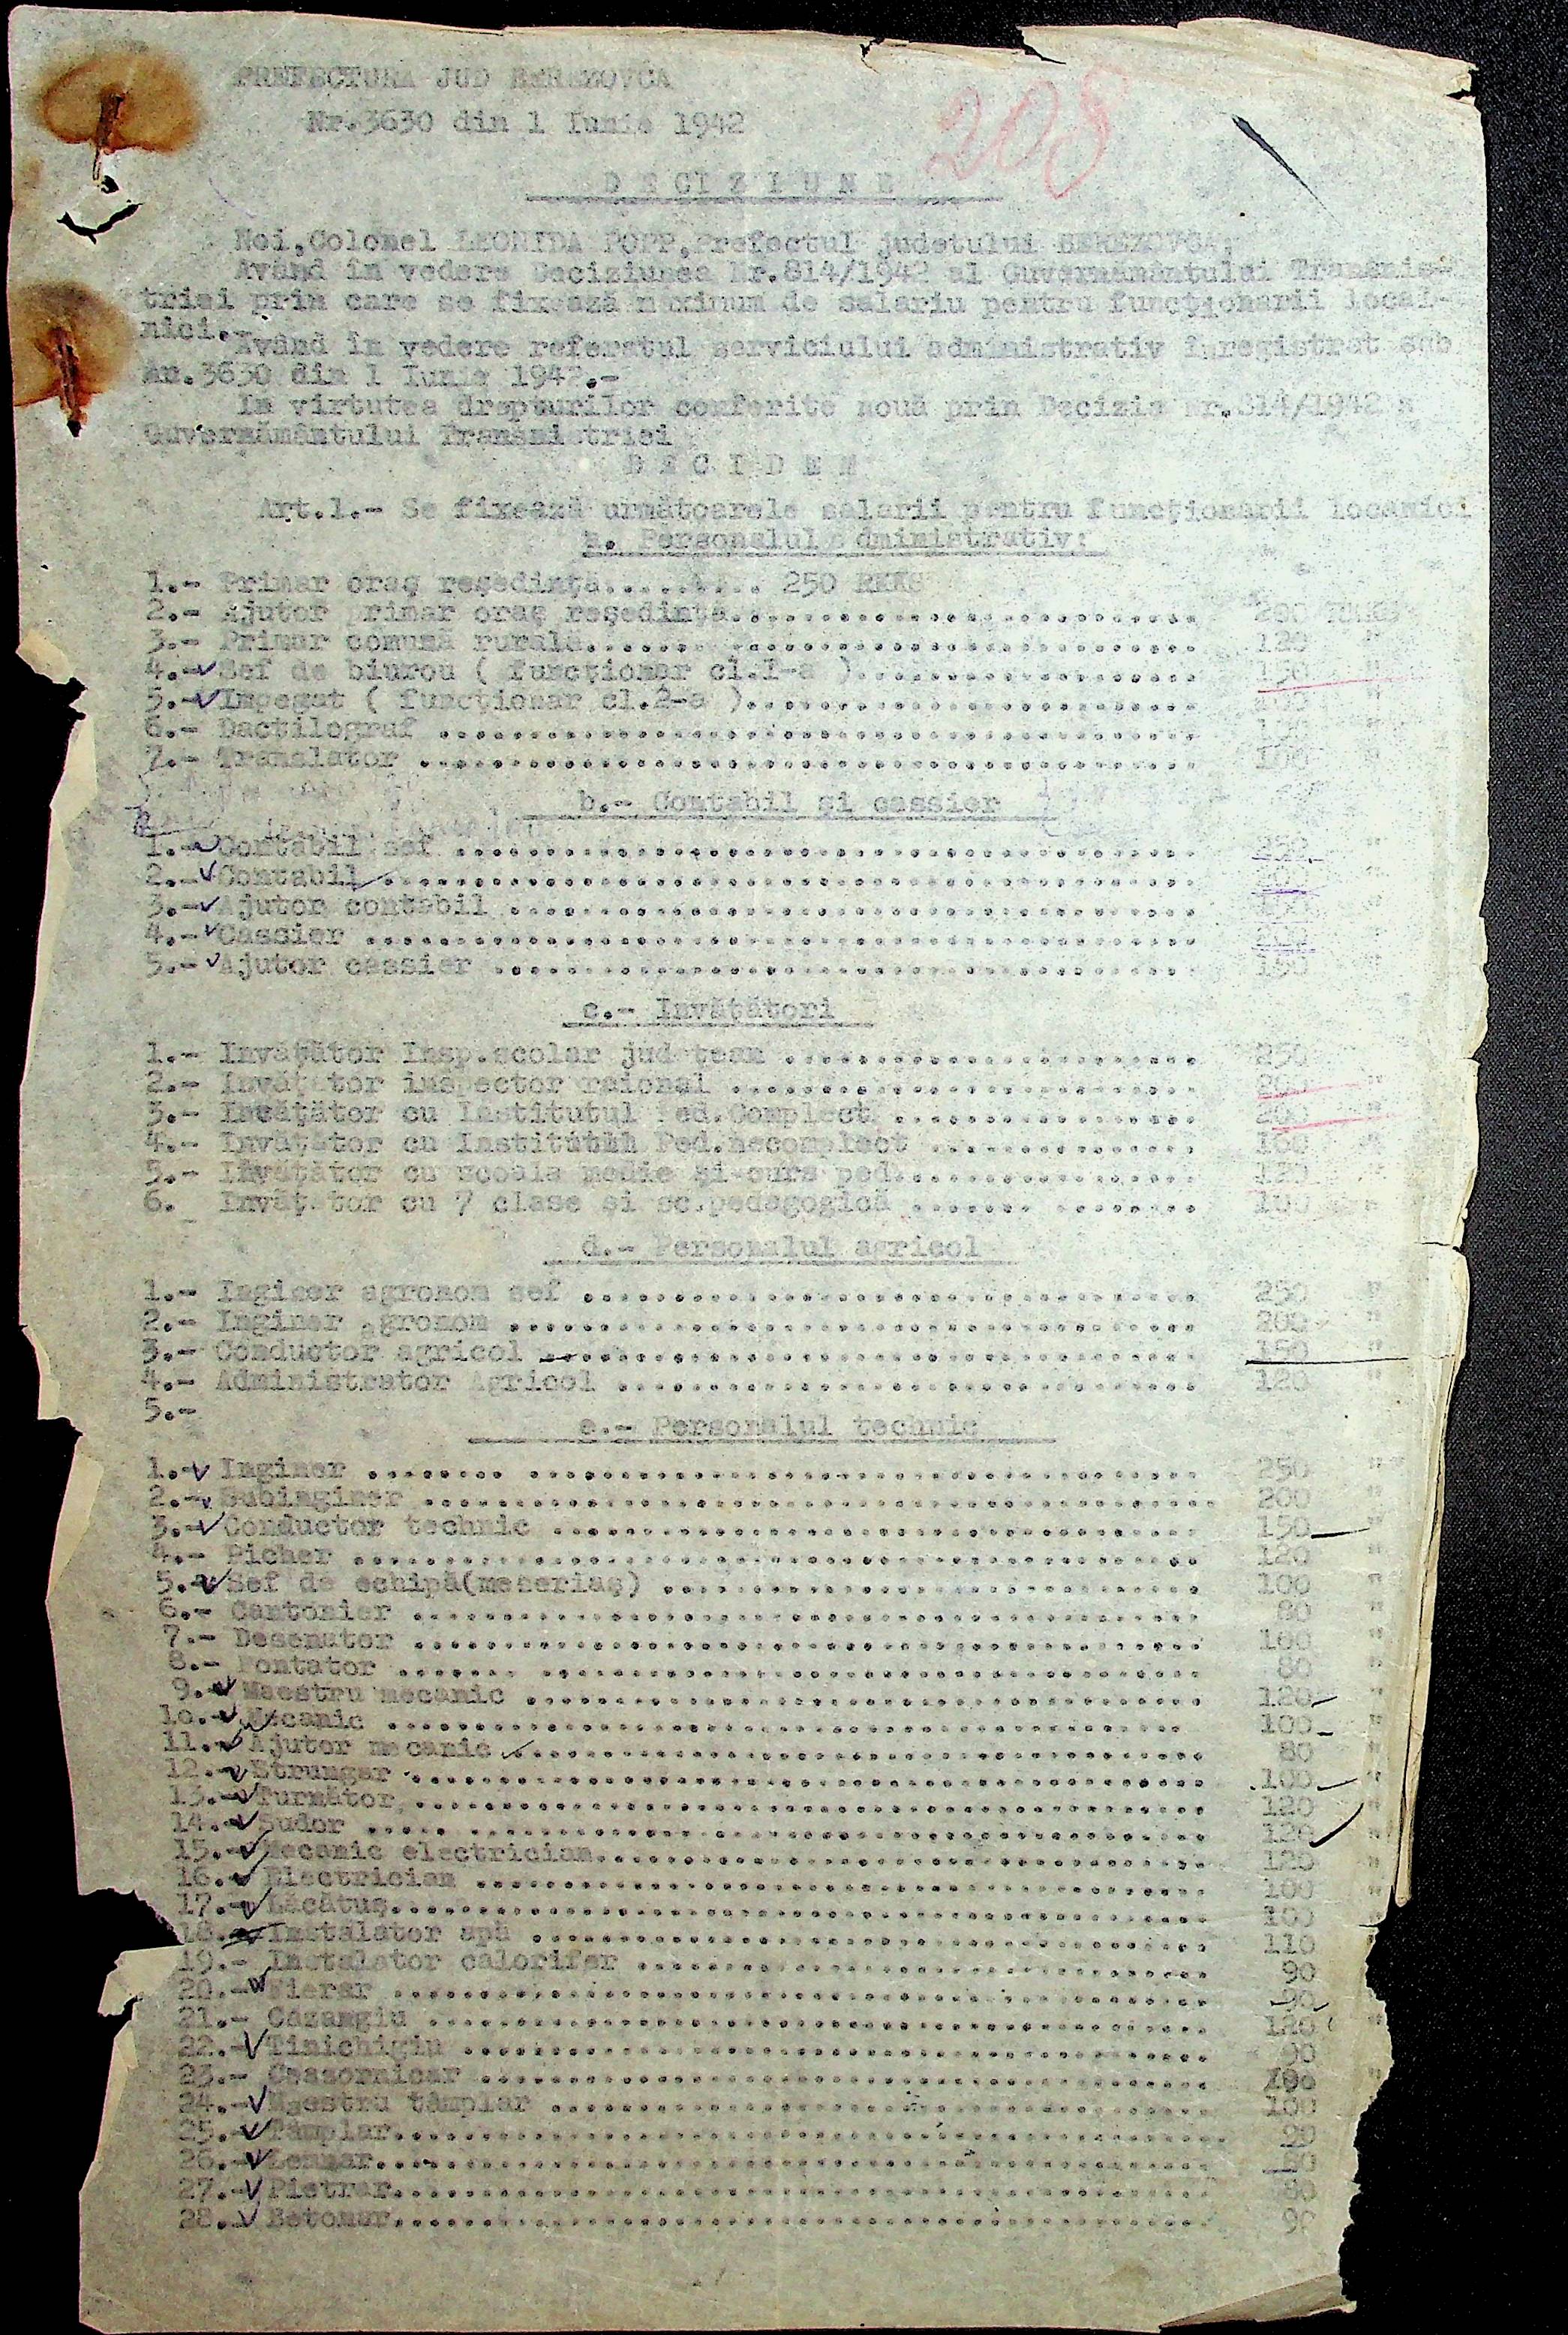 PREFECTURA JUD BEREZOVCA
Nr.3630 din 1 Iunie 1942
208
D E C I Z I U N E
Noi,Colonel LEONIDA POPP,Prefectul judetului BEREZOVCA,
Având in vedere Deciziunea Nr.814/1942 al Guvernământului Transnis-
triei prin care se fixează maximum de salariu pentru funcţionarii local-
nici.-
Având in vedere referatul serviciului administrativ înregistrat sub
nr.3630 din 1 Iunie 1942.-
In virtutea drepturilor conferite nouă prin Decizia nr.814/1942 a
Guvernământului Transnistriei
D E C I D E M
Art.1.- Se fixează următoarele salarii pentru funcţionarii locanici
a. Personalul administrativ:
1.- Primar oraş reşedinţă.......... 250 RKKS
2.- Ajutor primar oraş reşedinţa.............................. 200
3.- Primar comună rurală.............................. 120 "
4.- Sef de biurou ( funcţionar cl.I-a ).................... 150 "
5.- Impegat ( funcţionar cl.2-a ).............................. "
6.- Dactilograf .............................. "
7.- Translator .............................. 100 "
b.- Contabil şi cassier
1.- Contabil sef .............................. 250 "
2.- Contabil ..............................
3.- Ajutor contabil .............................. 150 "
4.- Cassier .............................. 200 "
5.- Ajutor cassier .............................. 150
c.- Invăţători
1.- Invăţător Insp.scolar judeţean .................... 250
2.- Invăţător inspector raional .................... 200 "
3.- Invăţător cu Institutul Ped.Complect .................... 200 "
4.- Invăţător cu Institutul Ped.necomplect .................... 160 "
5.- Invăţător cu scoala medie şi curs ped.................... "
6. Invăţător cu 7 clase şi sc.pedagogică .................... 100
d.- Personalul agricol
1.- Inginer agronom sef .............................. 250 "
2.- Inginer agronom .............................. 200 "
3.- Conductor agricol .............................. 150 "
4.- Administrator Agricol .............................. 120 "
5.-
e.- Personalul technic
1.- Inginer .............................. 250 "
2.- Subinginer .............................. 200 "
3.- Conductor technic .............................. 150 "
4.- Picher .............................. 120 "
5.- Sef de echipă(meseriaş) .............................. 100 "
6.- Cantonier .............................. 80 "
7.- Desenator .............................. 100 "
8.- Pontator .............................. 80 "
9.- Maestru mecanic .............................. 120 "
10.- Mecanic .............................. 100 "
11.- Ajutor mecanic .............................. 80 "
12.- Strungar .............................. 100 "
13.- Turnător .............................. 120 "
14.- Sudor .............................. 120 "
15.- Mecanic electrician.............................. 120 "
16.- Electrician .............................. 100 "
17.- Lăcătuş.............................. 100 "
18.- Instalator apă .............................. 110 "
19.- Instalator calorifer .............................. 90 "
20.- Fierar .............................. 90
21.- Cazangiu .............................. 120 "
22.- Tinichigiu .............................. 90
23.- Ceasornicar ..............................
24.- Maestru tâmplar .............................. 100 "
25.- Tâmplar..............................
26.- Lemnar.............................. 80
27.- Pietrar.............................. 80
28.- Betonar.............................. 90